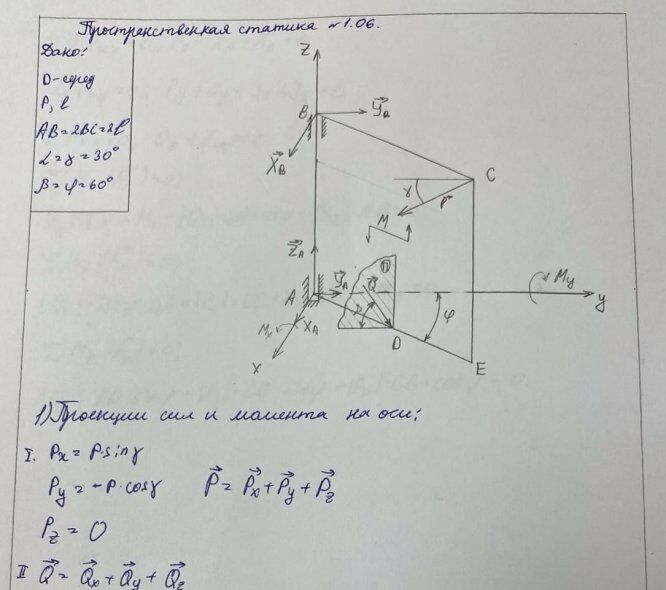 Пространственная статика №1.06.
Дано:
D-серед
P, l
AB=2BC=2l
α=γ=30°
β=φ=60°
Z
B
Y⃗
X⃗B
C
γ
P⃗
M
Z⃗A
П
Q⃗
A
Y⃗A
My
y
φ
Mx
XA
X
D
E
1) Проекции сил и момента на оси:
I. Px = P·sinγ
Py = -P·cosγ P⃗ = P⃗x + P⃗y + P⃗z
Pz = 0
II Q⃗ = Q⃗x + Q⃗y + Q⃗z